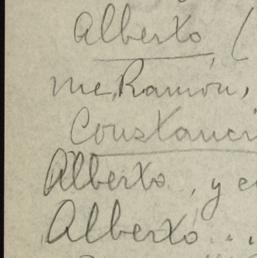 Alberto, (
me, Ramón,
Constanci
Alberto, y e
Alberto...